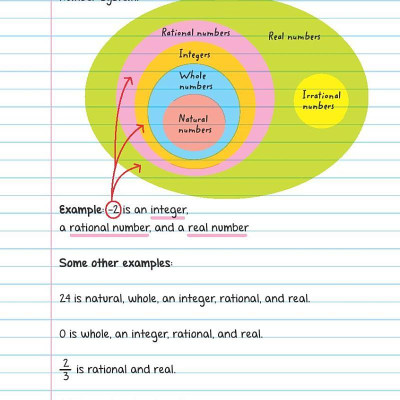 Rational numbers
Real numbers
Integers
Whole
numbers
Irrational
nunbers
Natural
numbers
Example: -2 is an integer,
a rational number, and a real number
Some other examples:
24 is natural, whole, an integer, rational, and real.
0 is whole, an integer, rational, and real.
2/3 is rational and real.